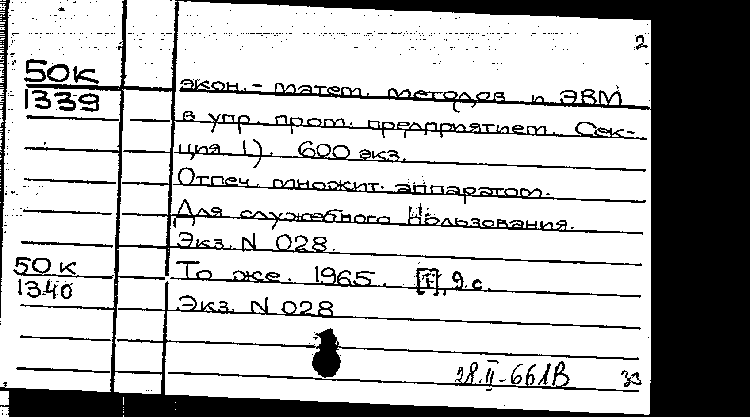 2
50К
1339
экон.- матем. методов и ЭВМ
в упр. пром. предприятием. Сек-
ция 1). 600 экз.
Отпеч. множит. аппаратом.
Для служебного пользования.
Экз. N 028.
50К
1340
То же. 1965. [1], 9 с.
Экз. N 028
28.II-661В 33